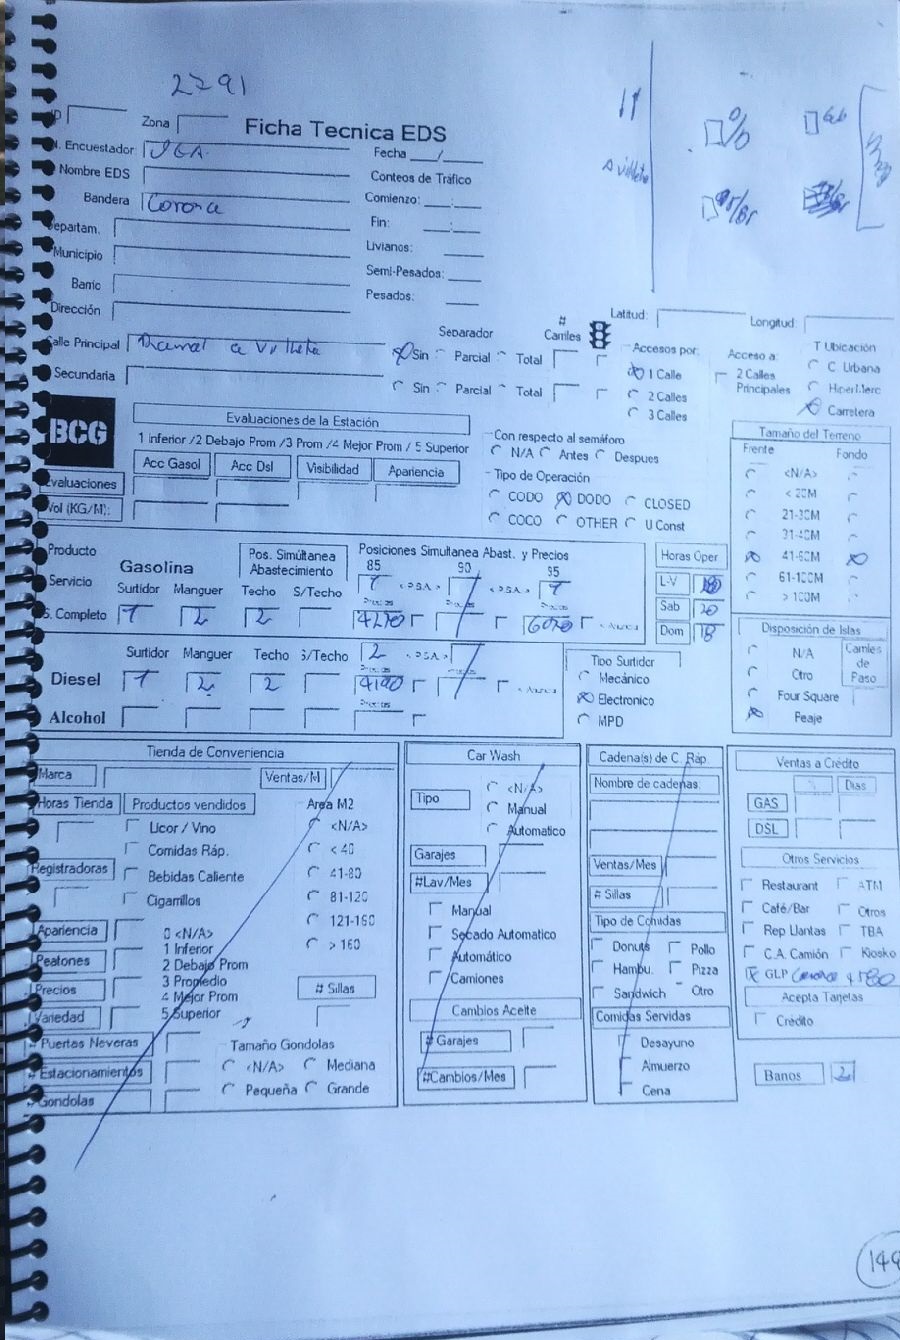 2791
Zona
Ficha Tecnica EDS
N. Encuestador
Fecha
Nombre EDS
Conteos de Tráfico
Bandera Corona
Comienzo:
Departam.
Fin:
Municipio
Livianos:
Barrio
Semi-Pesados:
Dirección
Pesados:
Latitud:
Longitud:
Calle Principal Ramal a Villeta
Separador
# Carriles
Sin Parcial Total
Secundaria
Sin Parcial Total
Accesos por:
1 Calle
2 Calles
3 Calles
Acceso a:
2 Calles
Principales
T Ubicación
C. Urbana
Hiper/Merc
Carretera
BCG
Evaluaciones de la Estación
1 Inferior /2 Debajo Prom /3 Prom /4 Mejor Prom / 5 Superior
Acc Gasol Acc Dsl Visibilidad Apariencia
Evaluaciones
Vol (KG/M):
Con respecto al semáforo
N/A Antes Despues
Tipo de Operación
CODO DODO CLOSED
COCO OTHER U Const
Tamaño del Terreno
Frente Fondo
<N/A>
< 20M
21-30M
31-40M
41-60M
61-100M
> 100M
Producto
Gasolina
Pos. Simúltanea
Abastecimiento
Posiciones Simultanea Abast. y Precios
85 90 95
Servicio
Surtidor Manguer Techo S/Techo
S. Completo 1 2 2
Horas Oper
L-V
Sab 20
Dom 18
Diesel
Surtidor Manguer Techo S/Techo
1 2 2
2
Alcohol
Tipo Surtidor
Mecánico
Electronico
MPD
Disposición de Islas
N/A
Otro
Four Square
Peaje
Carriles
de
Paso
Tienda de Converiencia
Marca
Ventas/M
Horas Tienda
Productos vendidos
Area M2
Licor / Vino
Comidas Ráp.
Bebidas Caliente
Cigarrillos
<N/A>
< 40
41-80
81-120
121-160
> 160
Registradoras
Apariencia
Peatones
Precios
Variedad
0 <N/A>
1 Inferior
2 Debajo Prom
3 Promedio
4 Mejor Prom
5 Superior
# Sillas
# Puertas Neveras
# Estacionamientos
# Gondolas
Tamaño Gondolas
<N/A> Mediana
Pequeña Grande
Car Wash
Tipo
<N/A>
Manual
Automatico
Garajes
#Lav/Mes
Manual
Secado Automatico
Automático
Camiones
Cambios Aceite
# Garajes
#Cambios/Mes
Cadena(s) de C. Ráp
Nombre de cadenas:
Ventas/Mes
# Sillas
Tipo de Comidas
Donuts Pollo
Hambu. Pizza
Sandwich Otro
Comidas Servidas
Desayuno
Almuerzo
Cena
Ventas a Crédito
Dias
GAS
DSL
Otros Servicios
Restaurant ATM
Café/Bar Otros
Rep Llantas TBA
C.A. Camión Kiosko
GLP
Acepta Tarjetas
Crédito
Banos 2